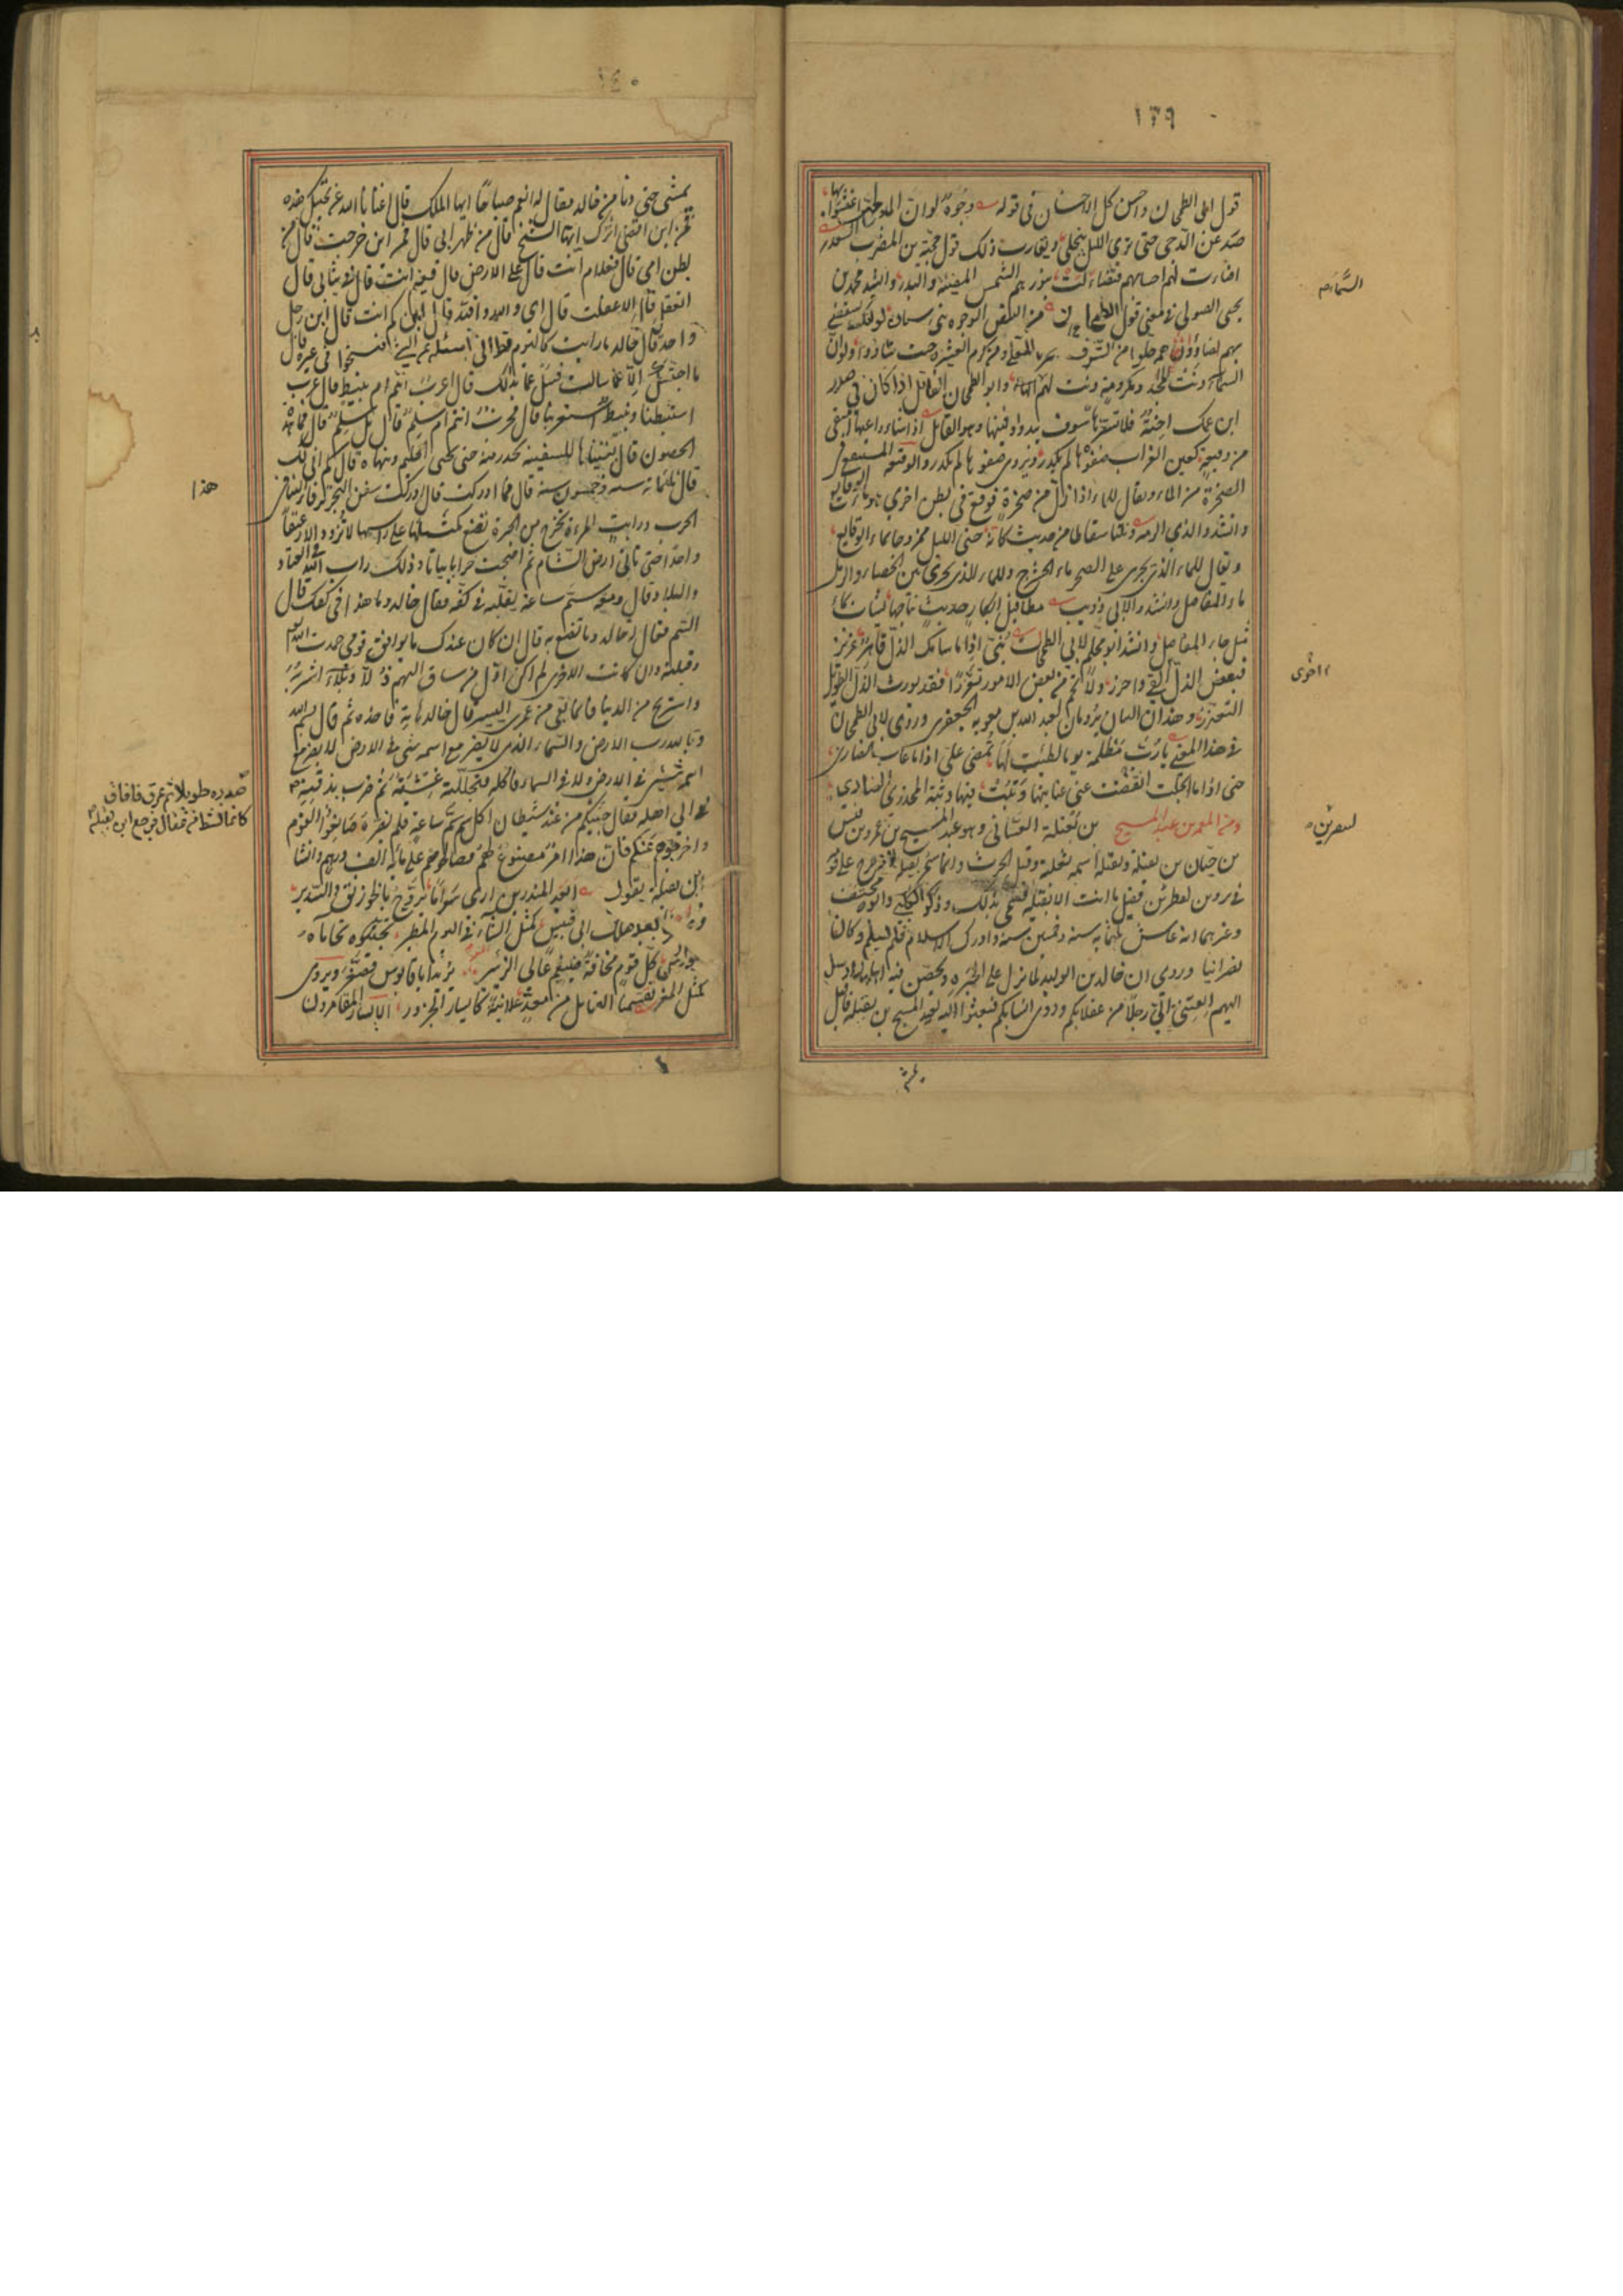 ١٣٩
قول ابى الطمحان واحسن كل الاحسان فى قوله وجوه لو ان المدلجين اعتشوا بها
صدعن الدجى حتى ترى الليل ينجلى ويقارب ذلك قول حجية بن المضرب السعدى
اضاءت لهم احسابهم فتضاءلت لنورهم الشمس المضيئة والبدر وانشد محمد بن
يحيى الصولى فى معنى قول ابى الطمحان من البيض الوجوه بنى سنان لو انك تستضئ
بهم اضاؤوا هم حلوا من الشرف المعلى ومن كرم العشيرة حيث شاؤوا ولو ان
السماء دنت لمجد ومكرمة دنت لهم السماء وابو الطمحان القائل اذا كان فى صدر
ابن عمك احنة فلا تستثرها سوف يبدو دفينها وهو القائل اذا شاء راعيها استقى
من وقيعة كعين الغراب صفوها لم يكدر ويروى صفوها لم تكدر والوقيعة المستنقع فى
الصخرة من الماء ويقال للماء اذا زل من صخرة فوقع فى بطن اخرى ماء الوقايع
وانشدوا لذى الرمة ونلنا سقاطا من حديث كانه جنى النحل ممزوجا بماء الوقايع
ويقال للماء الذى يجرى على الصخر ماء الحشرج وللماء الذى يجرى بين الحصا والرمل
ماء المفاصل وانشدوا لابى ذويب مطافيل ابكار حديث نتاجها تشاب بماء
مثل ماء المفاصل وانشد ابو محلم لابى الطمحان بنى اذا ما سامك الذل قاهر عزيز
فبعض الذل ابقى واحرز ولا تحم من بعض الامور تعززا فقد يورث الذل الطويل
التعزز وهذان البيتان يرويان لعبد الله بن معوية الجعفرى وروى لابى الطمحان
فى هذا المعنى يا رب مظلمة يوما لطيت لها تمضى على اذا ما غاب نصارى
حتى اذا ما انجلت عنى غيابتها وثبت فيها وثبة المخدر الضارى
ومن المعمرين عبد المسيح بن بقيلة الغسانى وهو عبد المسيح بن عمرو بن قيس
بن حيان بن بقيلة وبقيلة اسمه ثعلبة وقيل الحرث وانما سمى بقيلة لانه خرج على قومه
فى بردين اخضرين فقيل ما انت الا بقيلة فسمى بذلك وذكر الكلبى وابو مخنف
وغيرهما انه عاش ثلثماية سنة وخمسين سنة وادرك الاسلام فلم يسلم وكان
نصرانيا وروى ان خالد بن الوليد لما نزل على الحيرة وتحصن منه اهلها ارسل
اليهم ابعثوا الى رجلا من عقلائكم وذوى انسابكم فبعثوا اليه بعبد المسيح بن بقيلة فاقبل
السماء
اخرى
يمشى
١٤٠
يمشى حتى دنا من خالد فقال له انعم صباحا ايها الملك قال اغنانا الله عن تحيتك هذه
فمن اين اقصى اثرك ايها الشيخ قال من ظهر ابى قال فمن اين خرجت قال من
بطن امى قال فعلام انت قال على الارض قال ففيم انت قال فى ثيابى قال
اتعقل لا عقلت قال اى والله واقيد قال ابن كم انت قال ابن رجل
واحد قال خالد ما رايت كاليوم قط انى اسئله عن الشئ وينحو فى غيره قال
ما اجبتك الا عما سالت فسل عما بدا لك قال اعرب انتم ام نبيط قال عرب
استنبطنا ونبيط استعربنا قال فحرب انتم ام سلم قال بل سلم قال فما هذه
الحصون قال بنيناها للسفيه نحذر منه حتى يجئ الحليم فينهاه قال كم اتى لك
قال ثلثماية سنة وخمسون سنة قال فما ادركت قال ادركت سفن البحر ترفأ الينا فى
الجرف ورايت المرءة تخرج من الحيرة تضع مكتلها على راسها لا تزود الا رغيفا
واحدا حتى تاتى ارض الشام ثم قد اصبحت خرابا يبابا وذلك داب الله فى العباد
والبلاد قال ومعه سم ساعة يقلبه فى كفه فقال خالد وما هذا فى كفك قال
السم فقال خالد وما تصنع به قال ان كان عندك ما يوافق قومى حمدت الله
وقبلته وان كانت الاخرى لم اكن اول من ساق اليهم ذلا وبلاء اشربه
واستريح من الدنيا فانما بقى من عمرى اليسير قال خالد هاته فاخذه ثم قال بسم الله
وبالله رب الارض والسماء الذى لا يضر مع اسمه شئ فى الارض ولا يضر مع
اسمه شئ فى الارض ولا فى السماء فاكله فتجللته غشية ثم ضرب بذقنه
الى اهله فقال جئتكم من عند شيطان اكل سم ساعة فلم يضره صانعوا القوم
واخرجوهم عنكم فان هذا امر مصنوع لهم فصالحوهم على ماية الف درهم وانشا
ابن بقيلة يقول ابعد المنذرين ارى سواما تروح بالخورنق والسدير
بعد هلاك ابى قبيس كمثل الشاء فى اليوم المطير تحاماه
فوارس كل قوم مخافة ضيغم عالى الزئير يريد ابا قابوس فصغر ويروى
كمثل المعز تقسمنا القبائل من معد علانية كايسار الجزور الايسار المقامرون
هذا
صدره طويلا ثم عرق فافاق
كانما نشط من عقال فرجع ابن بقيلة